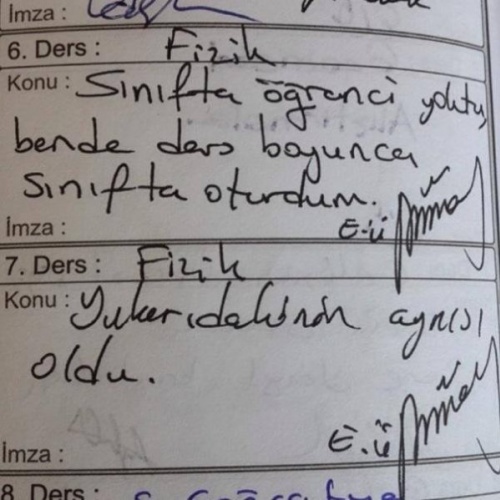 İmza :
6. Ders : Fizik
Konu : Sınıfta öğrenci yoktu,
bende ders boyunca
sınıfta oturdum.
İmza : E.ü
7. Ders : Fizik
Konu : Yukarıdakinin aynısı
oldu.
İmza : E.ü
8. Ders :